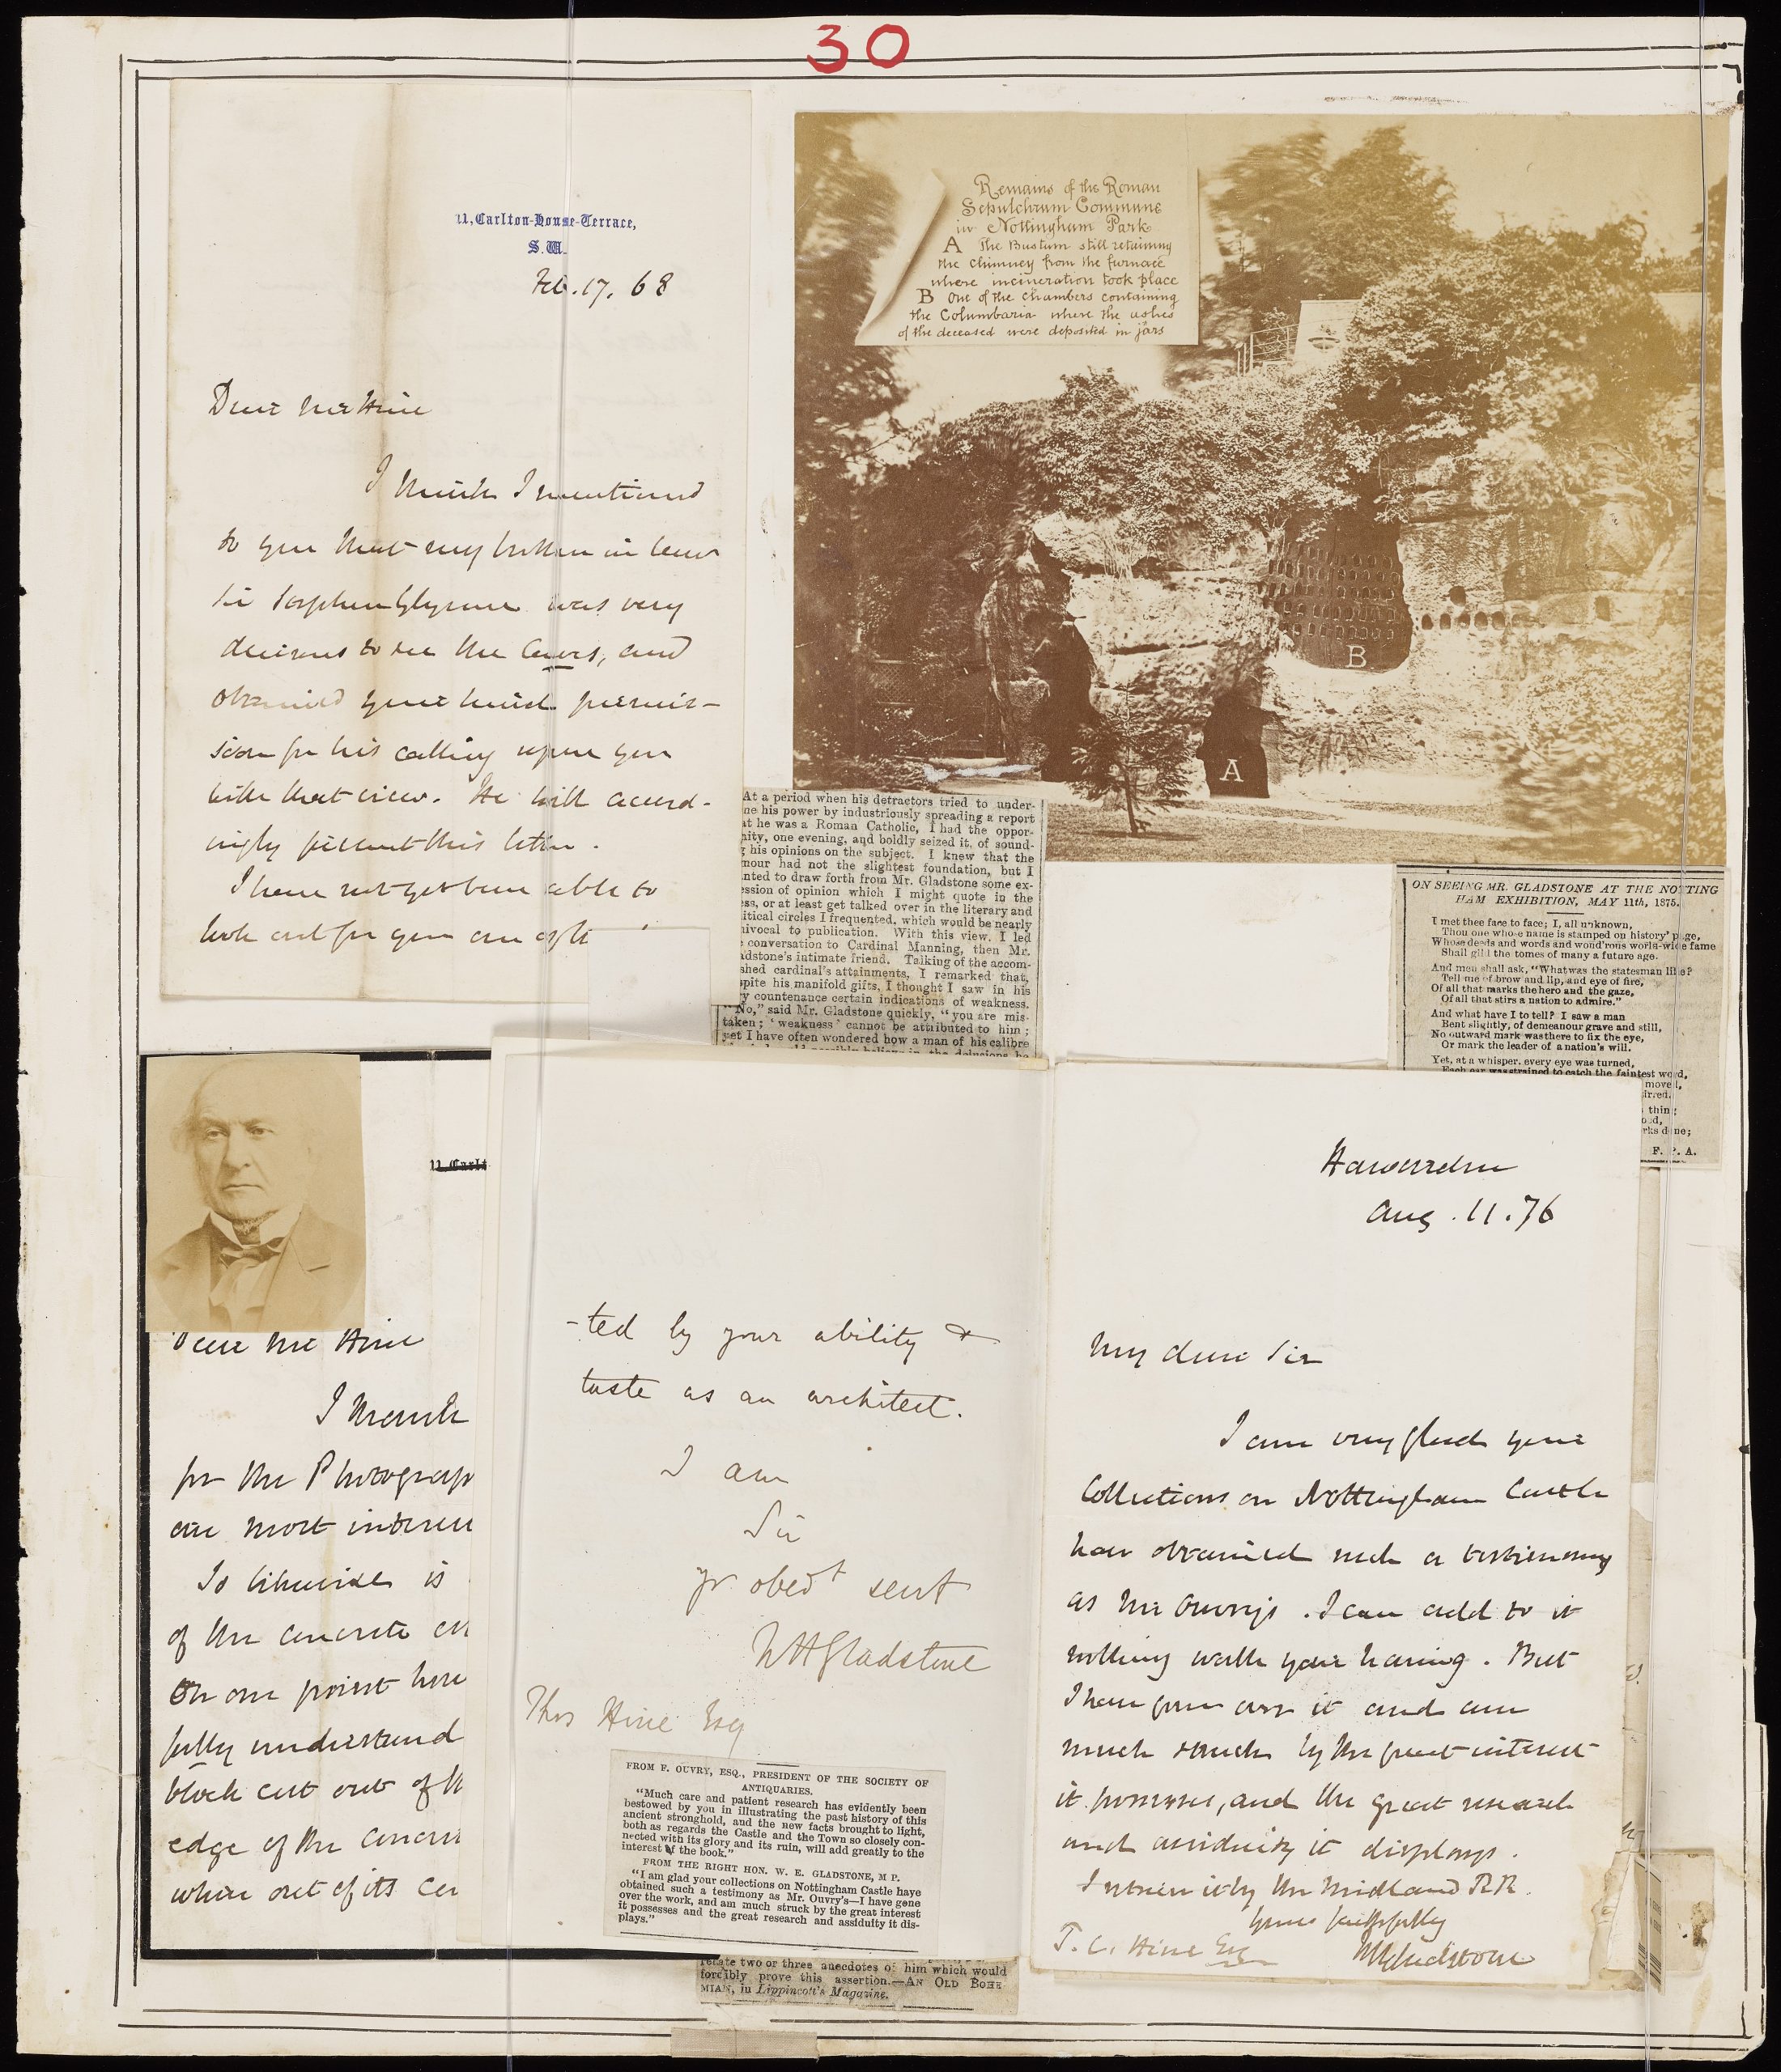 30
11, Carlton-House-Terrace,
S.W.
Feb. 17. 68
Dear Mr Hine
I think I mentioned
to you that my brother in law
Sir Stephen Glynne was very
desirous to see the Caves, and
obtained your kind permis-
sion for his calling upon you
with that view. He will accord-
ingly present this letter.
I have not yet been able to
look out for you an
Remains of the Roman
Sepulchrum Commune
in Nottingham Park
A The Bustum still retaining
the chimney from the furnace
where incineration took place
B One of the chambers containing
the Columbaria where the ashes
of the deceased were deposited in jars
B
A
At a period when his detractors tried to under-
ne his power by industriously spreading a report
at he was a Roman Catholic, I had the oppor-
nity, one evening, and boldly seized it, of sound-
g his opinions on the subject. I knew that the
mour had not the slightest foundation, but I
nted to draw forth from Mr. Gladstone some ex-
ession of opinion which I might quote in the
ess, or at least get talked over in the literary and
litical circles I frequented, which would be nearly
nivocal to publication. With this view, I led
e conversation to Cardinal Manning, then Mr.
adstone's intimate friend. Talking of the accom-
shed cardinal's attainments, I remarked that,
spite his manifold gifts, I thought I saw in his
y countenance certain indications of weakness.
"No," said Mr. Gladstone quickly, "you are mis-
taken; 'weakness' cannot be attributed to him;
yet I have often wondered how a man of his calibre
ON SEEING MR. GLADSTONE AT THE NOTTING
HAM EXHIBITION, MAY 11th, 1875.
I met thee face to face; I, all unknown,
Thou one whose name is stamped on history' page,
Whose deeds and words and wond'rous world-wide fame
Shall gild the tomes of many a future age.
And men shall ask, "What was the statesman like?
Tell me of brow and lip, and eye of fire,
Of all that marks the hero and the gaze,
Of all that stirs a nation to admire."
And what have I to tell? I saw a man
Bent slightly, of demeanour grave and still,
No outward mark was there to fix the eye,
Or mark the leader of a nation's will.
Yet, at a whisper, every eye was turned,
Each ear was strained to catch the faintest word,
moved,
irred.
thing
ood,
rks done;
F. P. A.
11, Carlt
Dear Mr Hine
I thank
for the Photograp
are most interes
So likewise is
of the concrete
On one point how
fully understand
block cut out of th
edge of the concre
where out of its cen
-ted by your ability &
taste as an architect.
I am
Sir
yr obedt servt
WHGladstone
Thos Hine Esq
FROM F. OUVRY, ESQ., PRESIDENT OF THE SOCIETY OF
ANTIQUARIES.
"Much care and patient research has evidently been
bestowed by you in illustrating the past history of this
ancient stronghold, and the new facts brought to light,
both as regards the Castle and the Town so closely con-
nected with its glory and its ruin, will add greatly to the
interest of the book."
FROM THE RIGHT HON. W. E. GLADSTONE, M P.
"I am glad your collections on Nottingham Castle have
obtained such a testimony as Mr. Ouvry's—I have gone
over the work, and am much struck by the great interest
it possesses and the great research and assiduity it dis-
plays."
relate two or three anecdotes of him which would
forcibly prove this assertion.—AN OLD BOHE
MIAN, in Lippincott's Magazine.
Hawarden
Aug. 11. 76
My dear Sir
I am very glad your
Collections on Nottingham Castle
have obtained such a testimony
as Mr Ouvry's. I can add to it
nothing worth your having. But
I have gone over it and am
much struck by the great interest
it possesses, and the great research
and assiduity it displays.
I return it by the Midland RR.
Yours faithfully
WEGladstone
T. C. Hine Esq